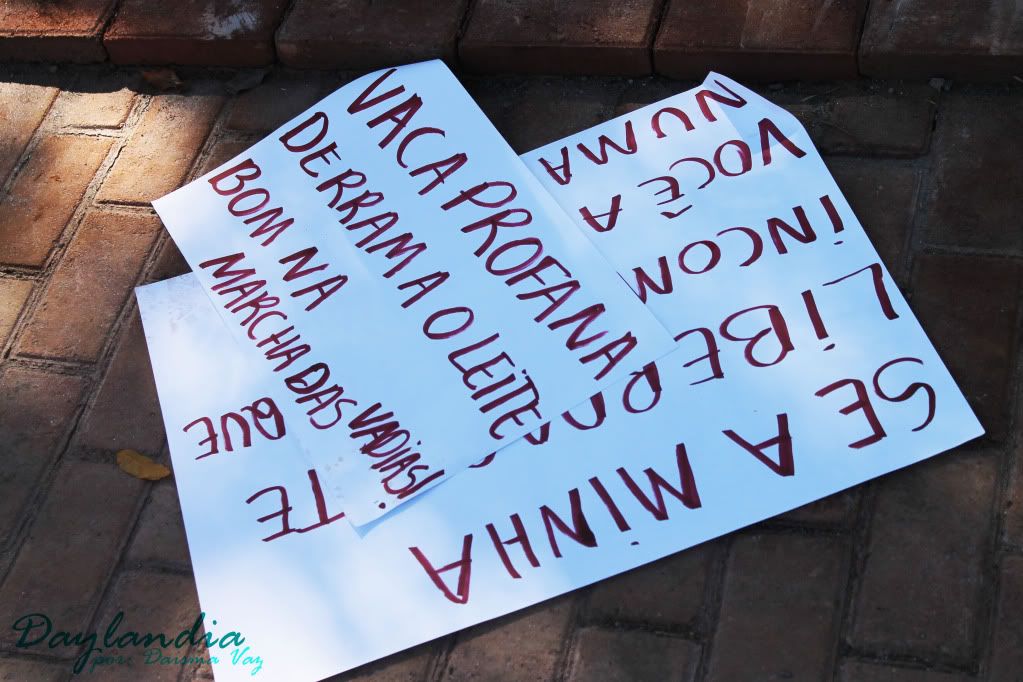 VACA PROFANA
DERRAMA O LEITE
BOM NA
MARCHA DAS VADIAS!
SE A MINHA
LIBERDADE TE
INCOM QUE
VOCÊ A
NUMA
Daylandia
por: Daisma Vaz